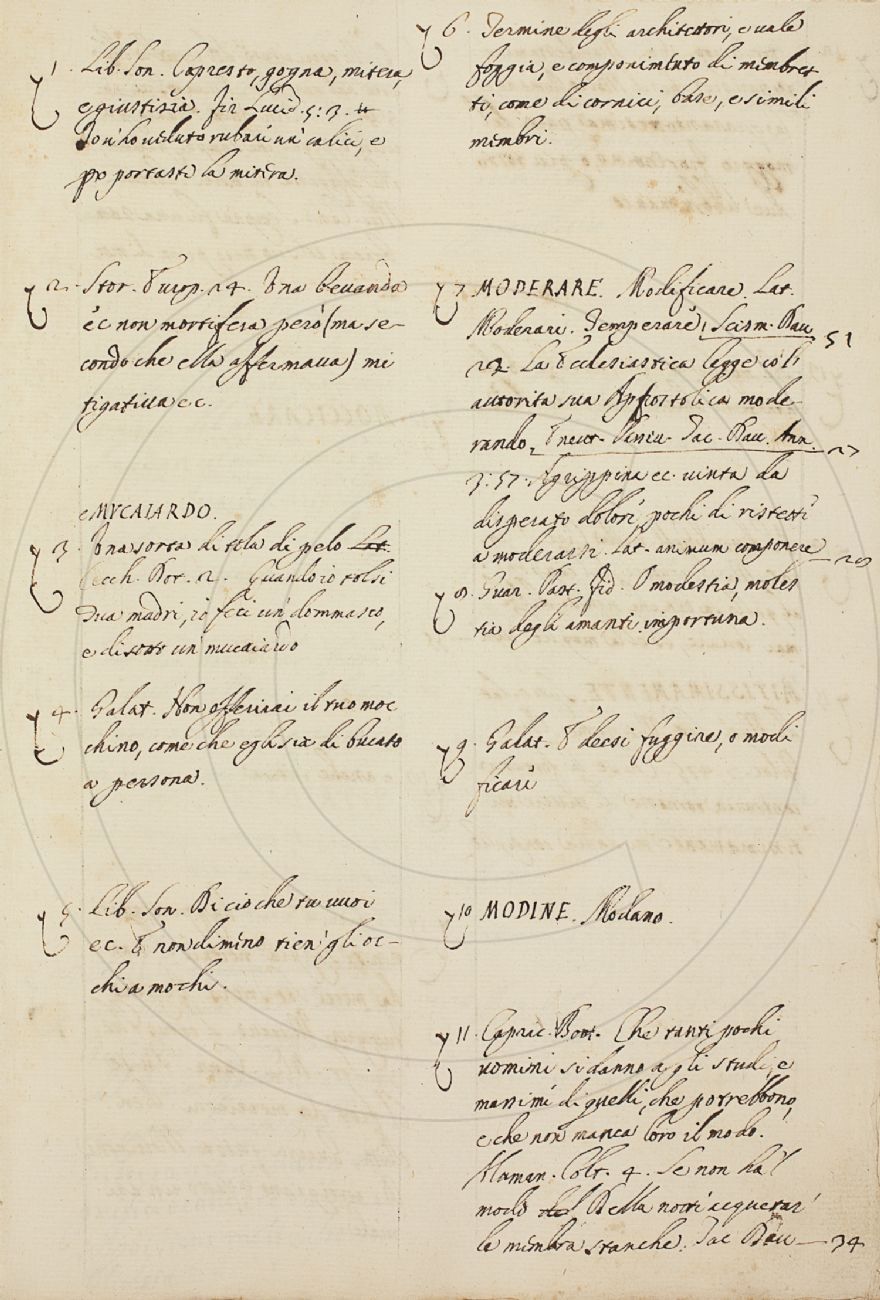 1. Lib. Son. Capresto, gogna, mitera,
e giustizia. Fir. Lucid. 5: 3.
Non ho veduto rubare un calice, e
portasti la mitera.
2. Stor. Europ. 14. Una bevanda
ec non mortifera però (ma se-
condo che ella affermava) mi
tigativa ec.
MVCAIARDO.
3. Una sorta di tela di pelo Lat.
Cecch. Dot. 2. Quando io tolsi
tua madre, io feci un dommasco,
e di sotto un mucaiardo
4. Galat. Non offerirai il tuo moc
chino, come che egli sia di bucato
a persona.
5. Lib. Son. Di cio che tu vuoi
ec. E non dimeno tien gli oc-
chi a mochi.
6. Termine degli architettori, e vale
foggia, e componimento di membret
ti, come di cornici, base, e simili
membri.
7 MODERARE. Modificare. Lat.
Moderari. Temperare, Scism. Dav 51
La Ecclesiastica legge colli
autorita sua Appostolica mode-
rando, Tac. Dav. Ann. 27
3: 57. Agrippina ec. vinta da
disperato dolore, pochi di ristette
a moderarsi. Lat. animum componere 20
8. Guar. Past. fid. O modestia, moles
tia degli amanti importuna.
9. Galat. E deesi fuggire, o modi
ficare
10 MODINE. Modano.
11. Caprac. Bott. Che tanti pochi
uomini si danno agli studi, e
massime di quelli, che potrebbono,
e che non manca loro il modo.
Alaman. Colt. 4. Se non ha 'l
modo del Della notte acquetar
le membra stanche. Tac Dav 34